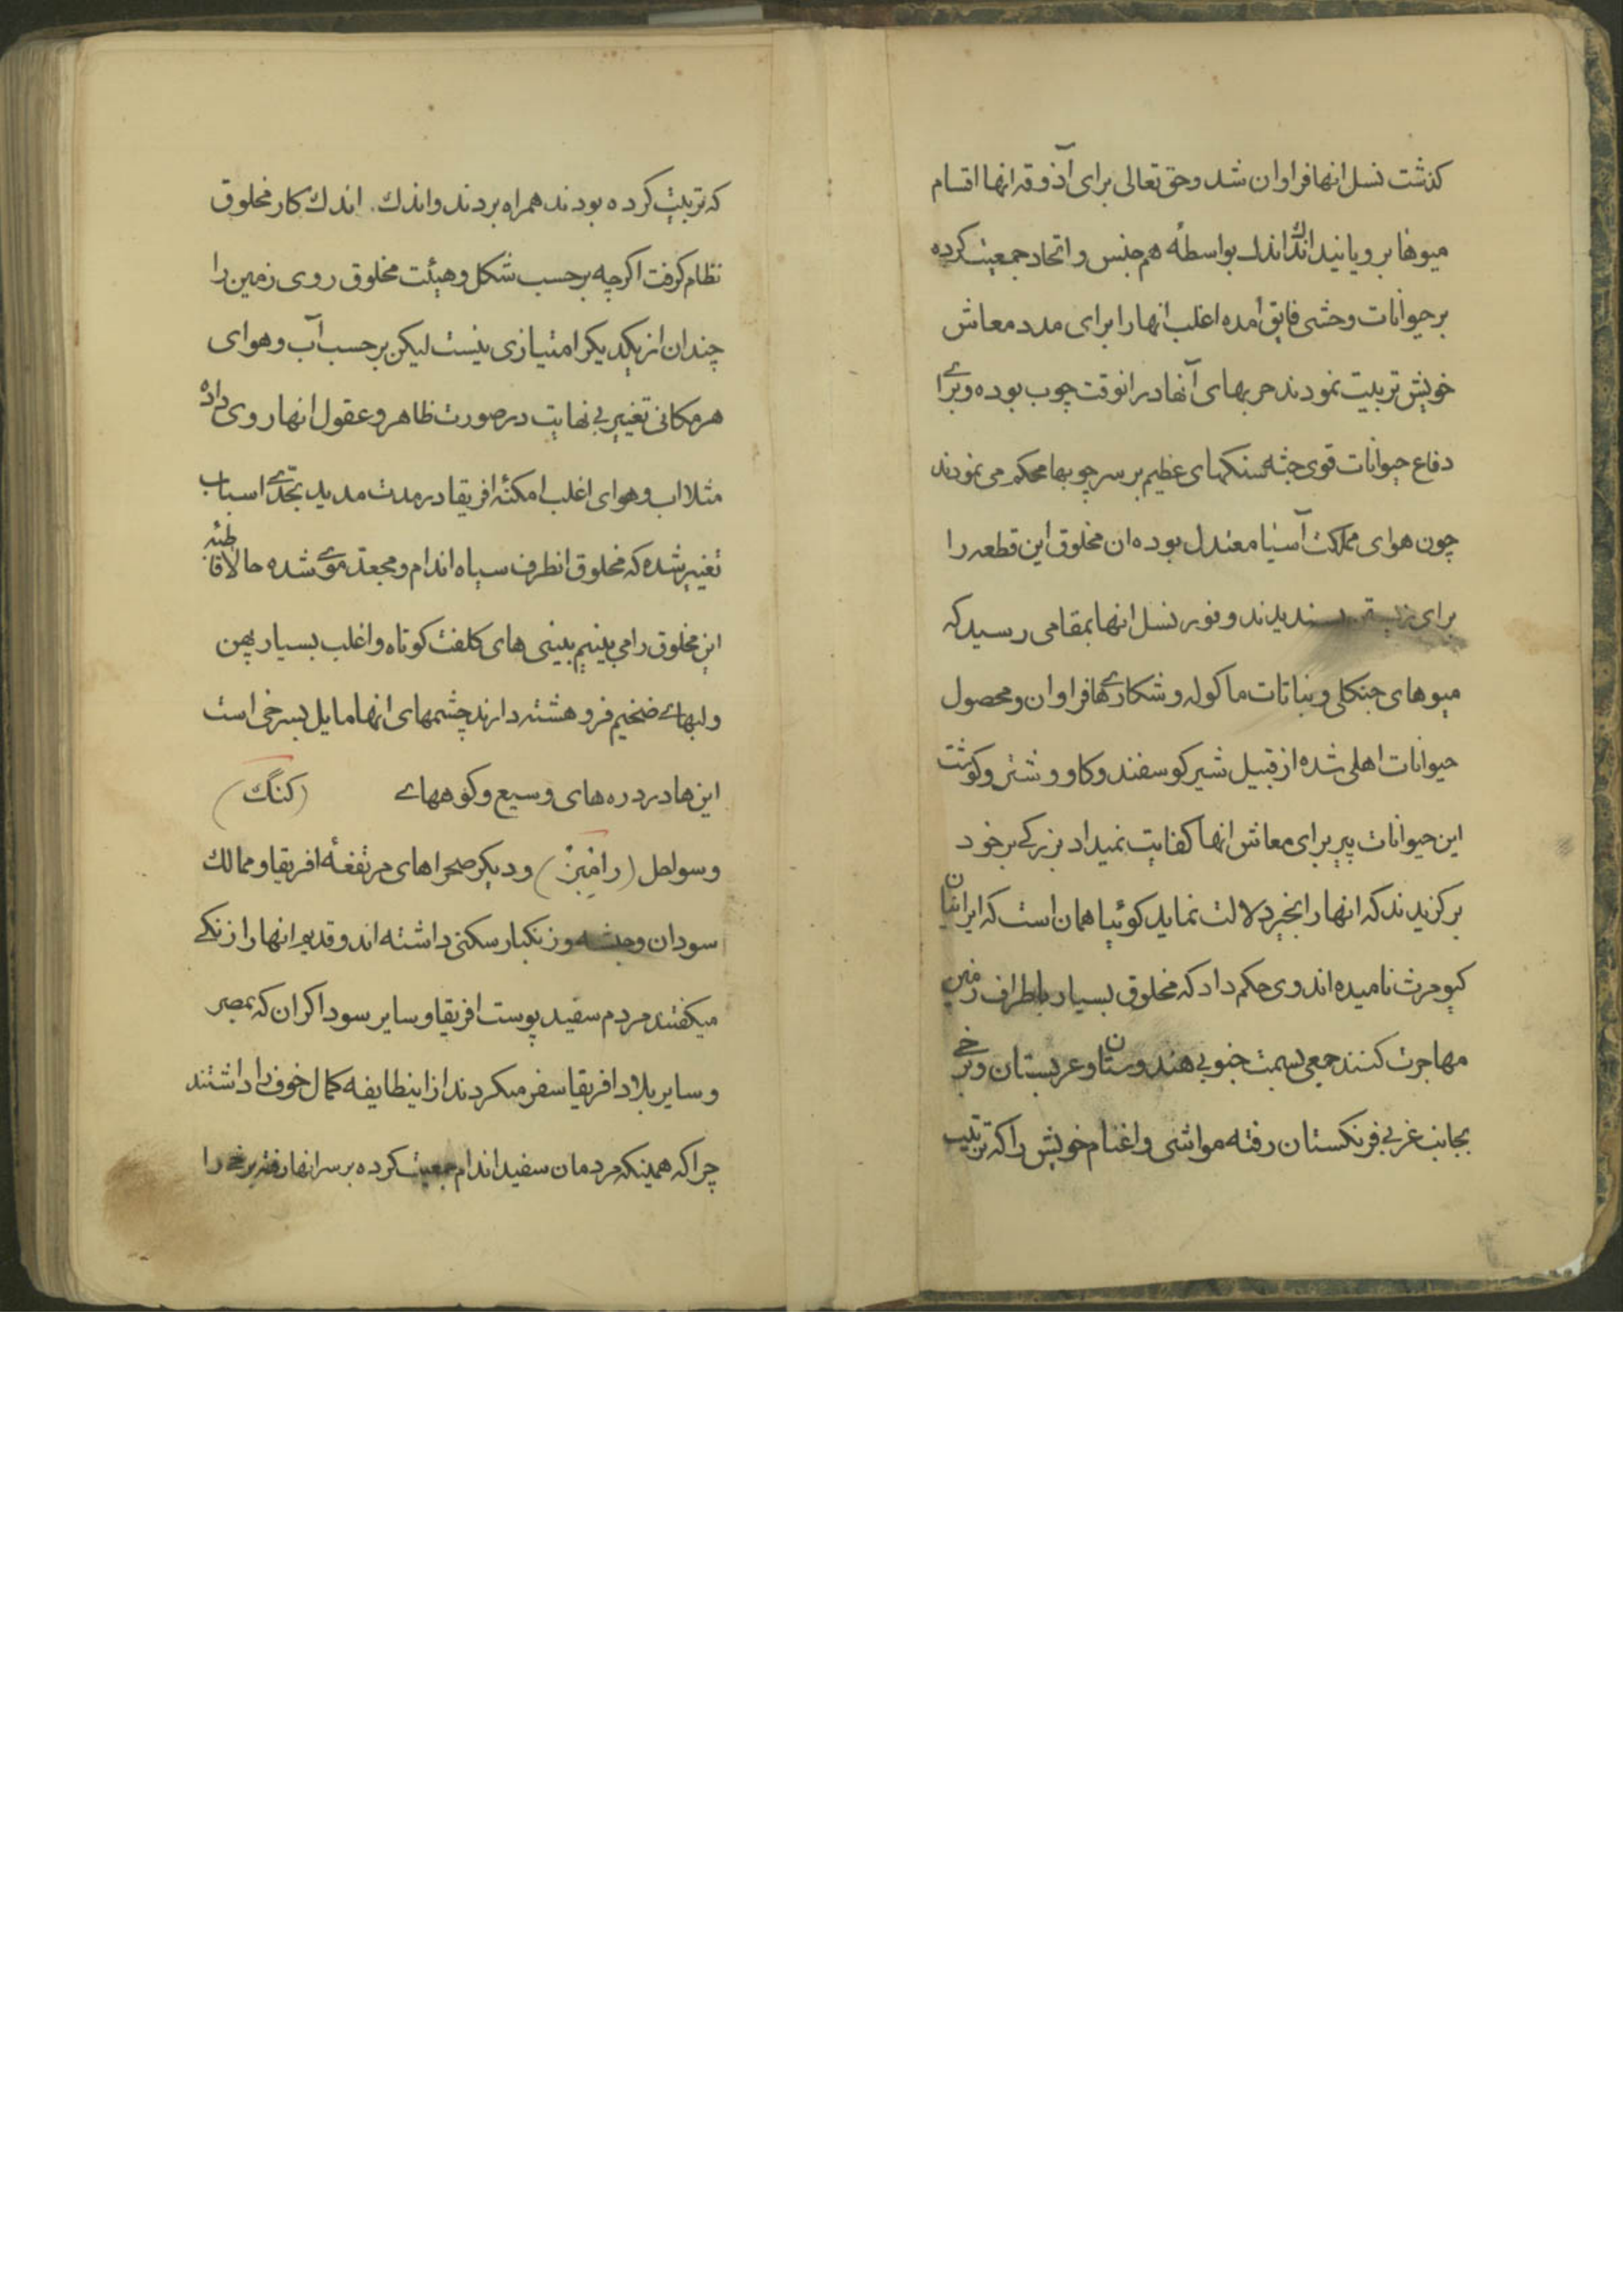 کذشت نسل انها فراوان شد وحق تعالی برای آذوقه انها اقسام
میوها برویانید اندک اندک بواسطهٔ هم جنس و اتحاد جمعیت کرده
بر حیوانات وحشی فایق آمده اغلب انها را برای مدد معاش
خویش تربیت نمودند حربهای آنها در انوقت چوب بوده و برای
دفاع حیوانات قوی جثه سنکهای عظیم بر سر چوبها محکم می نمودند
چون هوای مملکت آسیا معتدل بوده ان مخلوق این قطعه را
برای پسندیدند و فور نسل انها بمقامی رسید که
میوهای جنکلی و نباتات ماکوله و شکاری ها فراوان و محصول
حیوانات اهلی شده از قبیل شیر کوسفند و کاو و شتر و کوشت
این حیوانات پیر برای معاش انها کفایت نمیداد بزرکی بر خود
برکزیدند که انها را بخیر دلالت نماید کوئیا همان است که ایرانیان
کیومرث نامیده اند وی حکم داد که مخلوق بسیار باطراف زمین
مهاجرت کنند جمعی بسمت جنوبی هندوستان و عربستان و برخی
بجانب غربی فرنکستان رفته مواشی و اغنام خویش را که تربیت
که تربیت کرده بودند همراه بردند و اندک اندک کار مخلوق
نظام کرفت اکرچه بر حسب شکل و هیئت مخلوق روی زمین را
چندان از یکدیکر امتیازی نیست لیکن بر حسب آب و هوای
هر مکانی تغییر بی نهایت در صورت ظاهر و عقول انها روی داده
مثلا اب و هوای اغلب امکنهٔ افریقا در مدت مدید بحدی اسباب
تغییر شده که مخلوق انطرف سیاه اندام و مجعد موی شده حالا قاطبهٔ
این مخلوق را می بینیم بینی های کلفت کوتاه و اغلب بسیار پهن
و لبهای ضخیم فرو هشته دارند چشمهای انها مایل بسرخی است
این ها در دره های وسیع و کوههای (کنگ)
و سواحل (رامبز) و دیکر صحراهای مرتفعهٔ افریقا و ممالک
سودان و حبشه و زنکبار سکنی داشته اند و قدیم انها را زنکی
میکفتند مردم سفید پوست افریقا و سایر سوداکران که بمصر
و سایر بلاد افریقا سفر میکردند از اینطایفه کمال خوف را داشتند
چرا که همینکه مردمان سفید اندام جمعیت کرده بر سر انها رفته برخی را